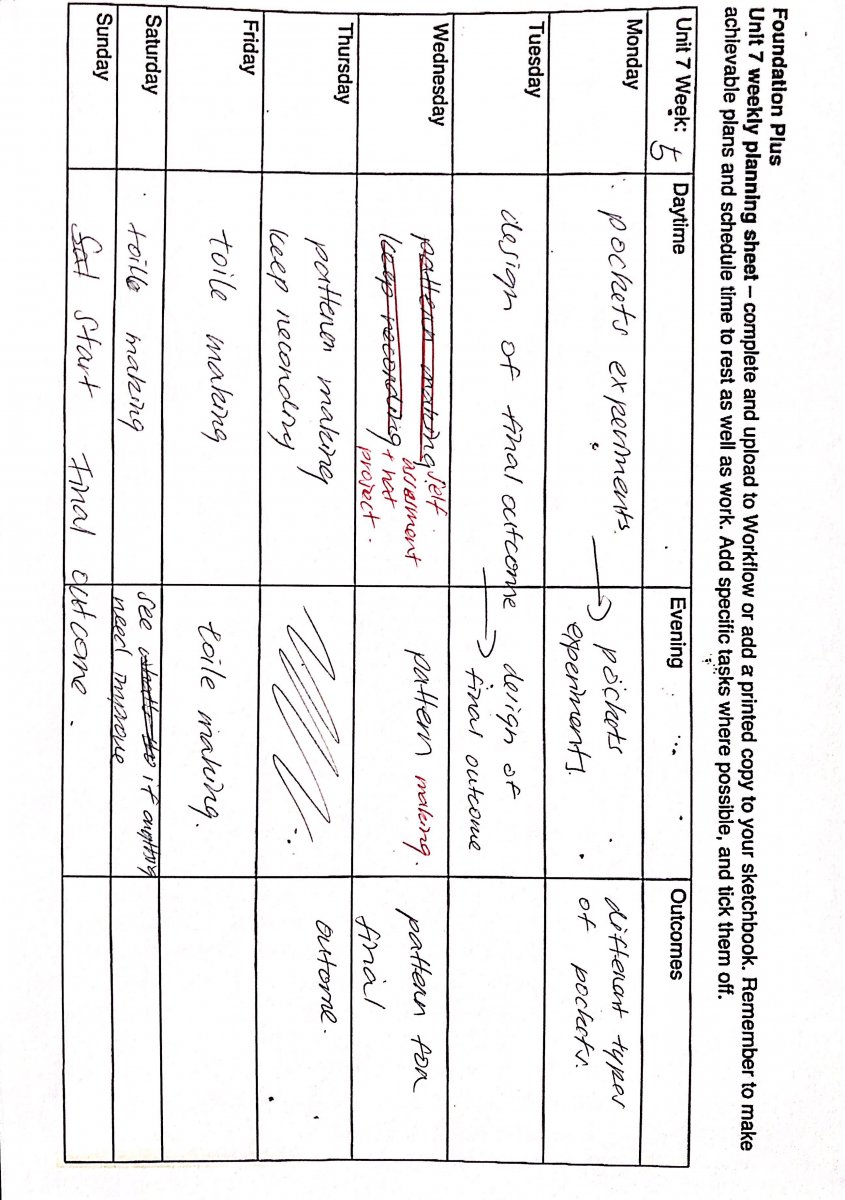 Foundation Plus
Unit 7 weekly planning sheet – complete and upload to Workflow or add a printed copy to your sketchbook. Remember to make
achievable plans and schedule time to rest as well as work. Add specific tasks where possible, and tick them off.
Unit 7 Week: 5
Daytime
Evening
Outcomes
Monday
pockets experiments.
pockets
experiments.
different types
of pockets.
Tuesday
design of final outcome
design of
final outcome
Wednesday
pattern making
keep reconding
self
assesment
+ hat
project.
pattern making.
pattern for
final
Thursday
patteren making
keep reconding
outome.
Friday
toile making
toile making.
Saturday
toille making
see if anything
need improve
Sunday
start final outcome.